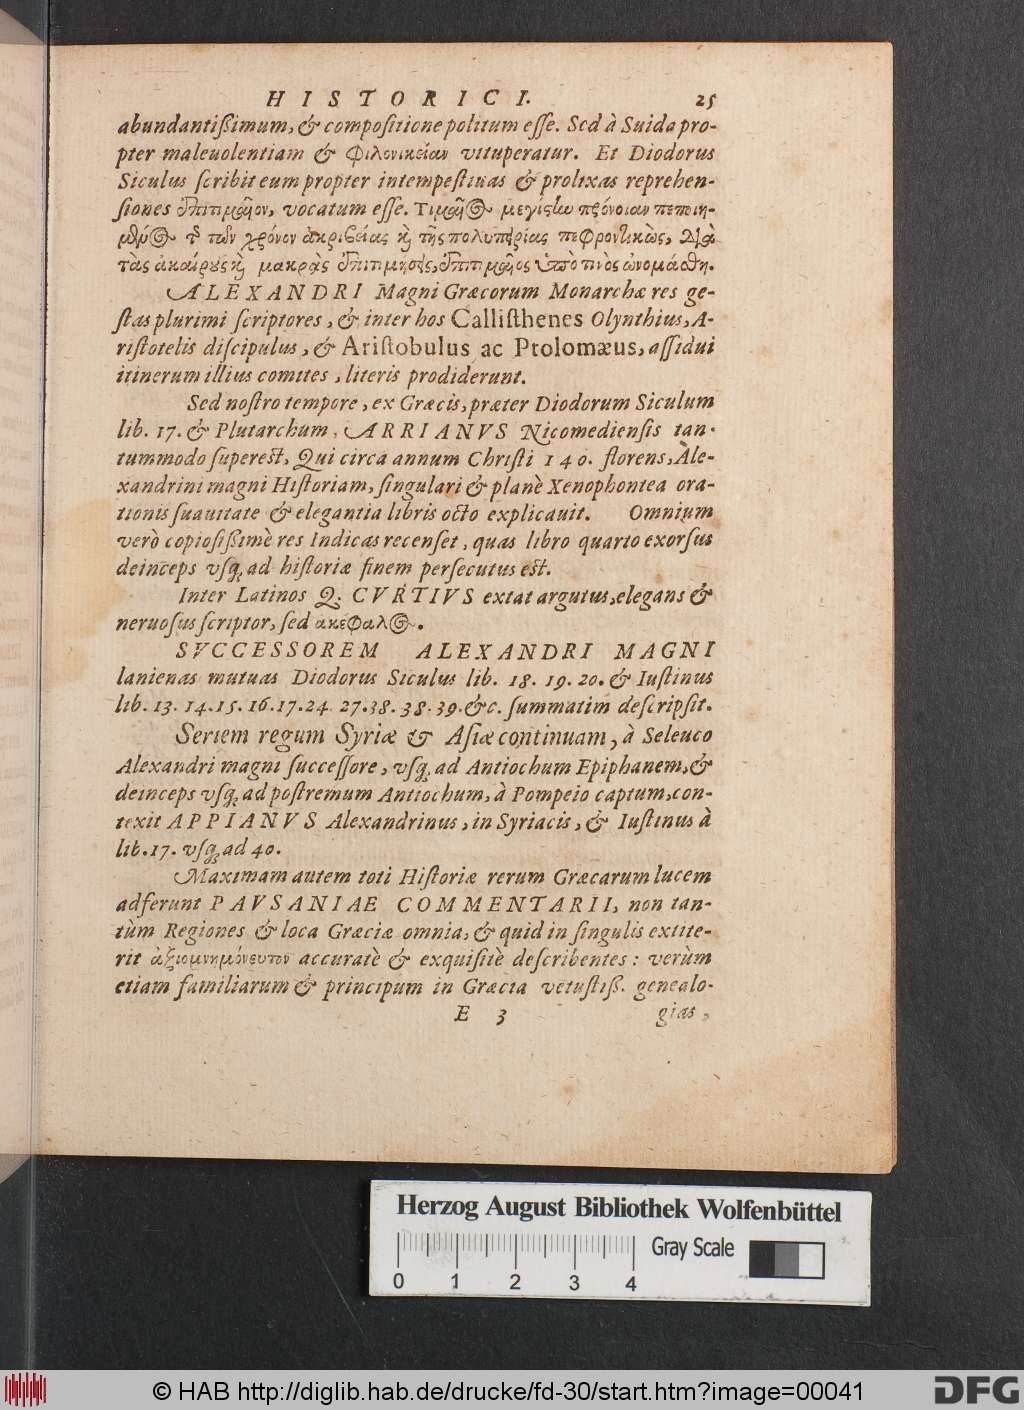 HISTORICI. 25
abundantißimum, & compositione politum esse. Sed à Suida pro-
pter maleuolentiam & φιλονικείαν vituperatur. Et Diodorus
Siculus scribit eum propter intempestiuas & prolixas reprehen-
siones ἐπιτιμαῖον, vocatum esse. Τιμαῖος μεγίστην πρόνοιαν πεποιη-
μένος τῶν χρόνων ἀκριβείας καὶ τῆς πολυπειρίας πεφροντικὼς, διὰ
τὰς ἀκαίρους καὶ μακρὰς ἐπιτιμήσεις, ἐπιτιμαῖος ὑπὸ τινὸς ὠνομάσθη.
ALEXANDRI Magni Græcorum Monarchæ res ge-
stas plurimi scriptores, & inter hos Callisthenes Olynthius, A-
ristotelis discipulus, & Aristobulus ac Ptolomæus, assidui
itinerum illius comites, literis prodiderunt.
Sed nostro tempore, ex Græcis, præter Diodorum Siculum
lib. 17. & Plutarchum, ARRIANVS Nicomediensis tan-
tummodo superest, Qui circa annum Christi 140. florens, Ale-
xandrini magni Historiam, singulari & planè Xenophontea ora-
tionis suauitate & elegantia libris octo explicauit. Omnium
verò copiosißimè res Indicas recenset, quas libro quarto exorsus
deinceps vsq; ad historiæ finem persecutus est.
Inter Latinos Q. CVRTIVS extat argutus, elegans &
neruosus scriptor, sed ακέφαλος.
SVCCESSOREM ALEXANDRI MAGNI
lanienas mutuas Diodorus Siculus lib. 18. 19. 20. & Iustinus
lib. 13. 14. 15. 16. 17. 24. 27. 38. 38. 39. &c. summatim descripsit.
Seriem regum Syriæ & Asiæ continuam, à Seleuco
Alexandri magni successore, vsq; ad Antiochum Epiphanem, &
deinceps vsq; ad postremum Antiochum, à Pompeio captum, con-
texit APPIANVS Alexandrinus, in Syriacis, & Iustinus à
lib. 17. vsq; ad 40.
Maximam autem toti Historiæ rerum Græcarum lucem
adferunt PAVSANIAE COMMENTARII, non tan-
tùm Regiones & loca Græciæ omnia, & quid in singulis extite-
rit ἀξιομνημόνευτον accuratè & exquisitè describentes: verùm
etiam familiarum & principum in Græcia vetustiß. genealo-
E 3 gias,
Herzog August Bibliothek Wolfenbüttel
Gray Scale
0 1 2 3 4
© HAB http://diglib.hab.de/drucke/fd-30/start.htm?image=00041
DFG